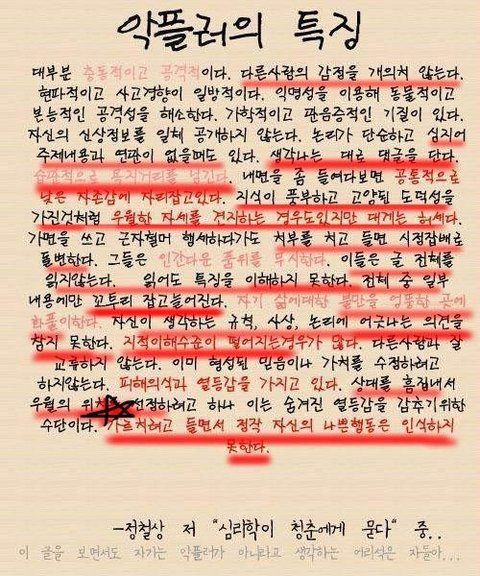 악플러의 특징
대부분 충동적이고 공격적이다. 다른사람의 감정을 개의치 않는다.
현파적이고 사고경향이 일방적이다. 익명성을 이용해 동물적이고
본능적인 공격성을 해소한다. 가학적이고 관음증적인 기질이 있다.
자신의 신상정보를 일체 공개하지 않는다. 논리가 단순하고 심지어
주제내용과 연관이 없을때도 있다. 생각나는 대로 댓글을 단다.
습관적으로 특지거리를 남긴다. 내면을 좀 들여다보면 공통적으로
낮은 자존감에 자리잡고있다. 지식이 풍부하고 고양된 도덕성을
가진것처럼 우월한 자세를 견지하는 경우도있지만 대게는 허세다.
가면을 쓰고 근자형머 행세하다가도 처부를 처고 들면 시정잡배로
돌변한다. 그들은 인간다운 품위를 무시한다. 이들은 글 전체를
읽지않는다. 읽어도 특징을 이해하지 못한다. 전체 중 일부
내용에만 꼬투리 잡고늘어진다. 자기 삶에대한 불만을 엉뚱한 곳에
화풀이한다. 자신이 생각하는 규칙, 사상, 논리에 어긋나는 의견을
참지 못한다. 지적이해수준이 떨어지는경우가 많다. 다른사람과 잘
교류하지 않는다. 이미 형성된 믿음이나 가치를 수정하려고
하지않는다. 피해의식과 열등감을 가지고 있다. 상대를 흠집내서
우월의 위치 선정하려고 하나 이는 숨겨진 열등감을 감추기위한
수단이다. 가르쳐려고 들면서 정작 자신의 나쁜행동은 인식하지
못한다.
-정철상 저 "심리학이 청춘에게 묻다" 중..
이 글을 보면서도 자기는 악플러가 아니라고 생각하는 어리석은 자들아...